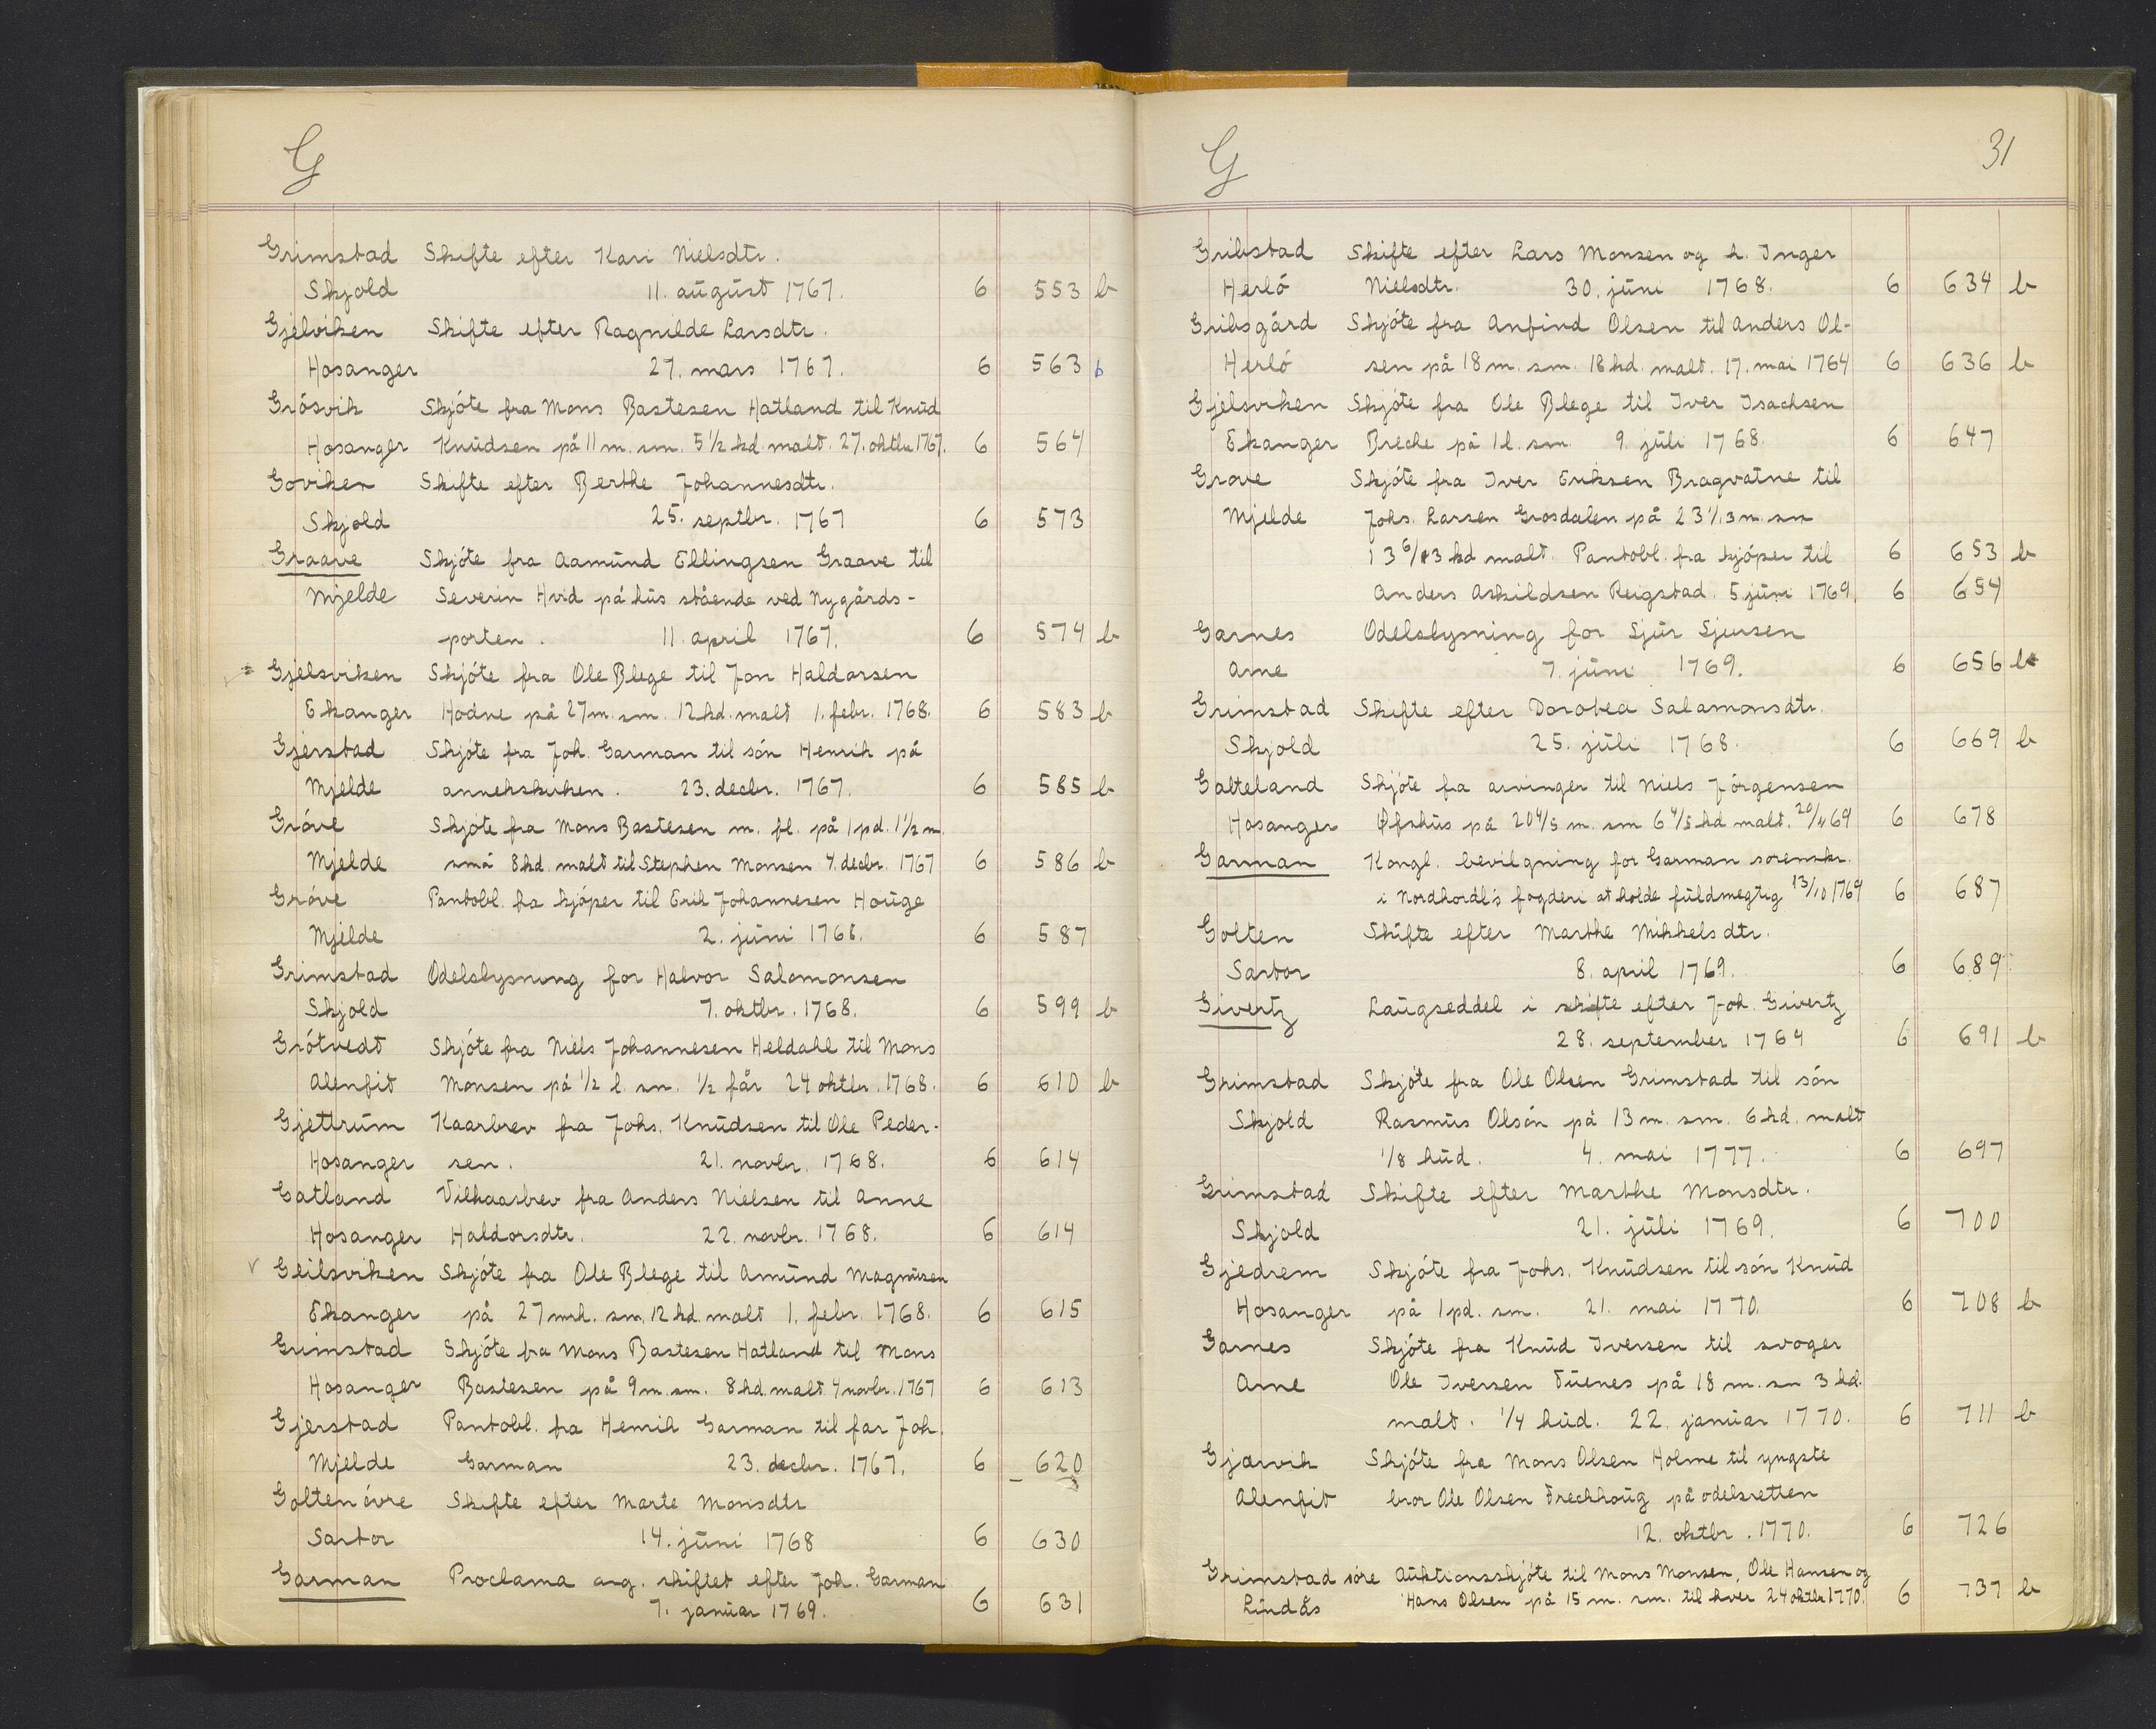 G
Grimstad Skifte efter Kari Nielsdtr.
Skjold 11. august 1767. 6 553 b
Gjelviken Skifte efter Ragnilde Larsdtr.
Hosanger 27. mars 1767. 6 563 b
Grósvik Skjóte fra Mons Bastesen Hatland til Knud
Hosanger Knudsen på 11 m. sm. 5 1/2 hd. malt. 27. oktbr. 1767. 6 564
Goviken Skifte efter Berthe Johannesdtr.
Skjold 25. septbr. 1767 6 573
Graave Skjóte fra Aamund Ellingsen Graave til
Mjelde Severin Hvid på hus stående ved Nygårds-
porten. 11. april 1767. 6 574 b
Gjelsviken Skjóte fra Ole Blege til Jon Haldorsen
Ekanger Hodne på 27 m. sm. 12 hd. malt 1. febr. 1768. 6 583 b
Gjerstad Skjóte fra Joh. Garman til són Henrik på
Mjelde annekskirken. 23. decbr. 1767. 6 585 b
Gróve Skjóte fra Mons Bastesen m. fl. på 1 pd. 1 1/2 m.
Mjelde små 8 hd. malt til Stephen Monsen 4. decbr. 1767 6 586 b
Gróve Pantobl. fra kjóper til Erik Johannesen Houge
Mjelde 2. juni 1768. 6 587
Grimstad Odelslysning for Halvor Salomonsen
Skjold 7. oktbr. 1768. 6 599 b
Grótvedt Skjóte fra Niels Johannesen Heldahl til Mons
Alenfit Monsen på 1/2 l. sm. 1/2 får 24 oktbr. 1768. 6 610 b
Gjettrum Kaarbrev fra Johs. Knudsen til Ole Peder-
Hosanger sen. 21. novbr. 1768. 6 614
Gatland Vilkaarbrev fra Anders Nielsen til Anne
Hosanger Haldorsdtr. 22. novbr. 1768. 6 614
Geilsviken Skjóte fra Ole Blege til Amund Magnusen
Ekanger på 27 mrk. sm. 12 hd. malt 1. febr. 1768. 6 615
Grimstad Skjóte fra Mons Bastesen Hatland til Mons
Hosanger Bastesen på 9 m. sm. 8 hd. malt 4 novbr. 1767 6 613
Gjerstad Pantobl. fra Henrik Garman til far Joh.
Mjelde Garman 23. decbr. 1767. 6 620
Golten óvre Skifte efter Marte Monsdtr
Sartor 14. juni 1768 6 630
Garman Proclama ang. skiftet efter Joh. Garman
7. januar 1769. 6 631
G 31
Gribstad Skifte efter Lars Monsen og h. Inger
Herló Nielsdtr. 30. juni 1768. 6 634 b
Gribsgård Skjóte fra Anfind Olsen til Anders Ol-
Herló sen på 18 m. sm. 18 hd. malt. 17. mai 1764 6 636 b
Gjelsviken Skjóte fra Ole Blege til Iver Isachsen
Ekanger Breche på 1 l. sm. 9. juli 1768. 6 647
Grove Skjóte fra Iver Eriksen Bragvatne til
Mjelde Johs. Larsen Grosdalen på 23 1/13 m. sm
13 6/13 hd malt. Pantobl. fra kjóper til 6 653 b
Anders Askildsen Reigstad. 5 juni 1769. 6 654
Garnes Odelslysning for Sjur Sjursen
Arne 7. juni 1769. 6 656 b
Grimstad Skifte efter Dorotea Salamonsdtr.
Skjold 25. juli 1768. 6 669 b
Galteland Skjóte fra arvinger til Niels Jórgensen
Hosanger Øfshus på 20 4/5 m. sm 6 4/5 hd malt. 20/11 69 6 678
Garman Kongl. bevilgning for Garman sorenskr.
i Nordhordl's fogderi at holde fuldmegtig 13/10 1769 6 687
Golten Skifte efter Marthe Mikkelsdtr.
Sartor 8. april 1769. 6 689
Givertz Laugseddel i skifte efter Joh. Givertz
28. september 1764 6 691 b
Grimstad Skjóte fra Ole Olsen Grimstad til són
Skjold Rasmus Olsón på 13 m. sm. 6 hd. malt
1/8 hud. 4. mai 1777. 6 697
Grimstad Skifte efter Marthe Monsdtr.
Skjold 21. juli 1769. 6 700
Gjedrem Skjóte fra Johs. Knudsen til són Knud
Hosanger på 1 pd. sm. 21. mai 1770. 6 708 b
Garnes Skjóte fra Knud Iversen til svoger
Arne Ole Iversen Tuenes på 18 m. sm 3 hd.
malt. 1/4 hud. 22. januar 1770. 6 711 b
Gjærvik Skjóte fra Mons Olsen Holme til yngste
Alenfit bror Ole Olsen Frechhoug på odelsretten
12. oktbr. 1770. 6 726
Grimstad sóre Auktionsskjóte til Mons Monsen, Ole Hansen og
Lindås Hans Olsen på 15 m. sm. til hver 24 oktbr 1770. 6 737 b